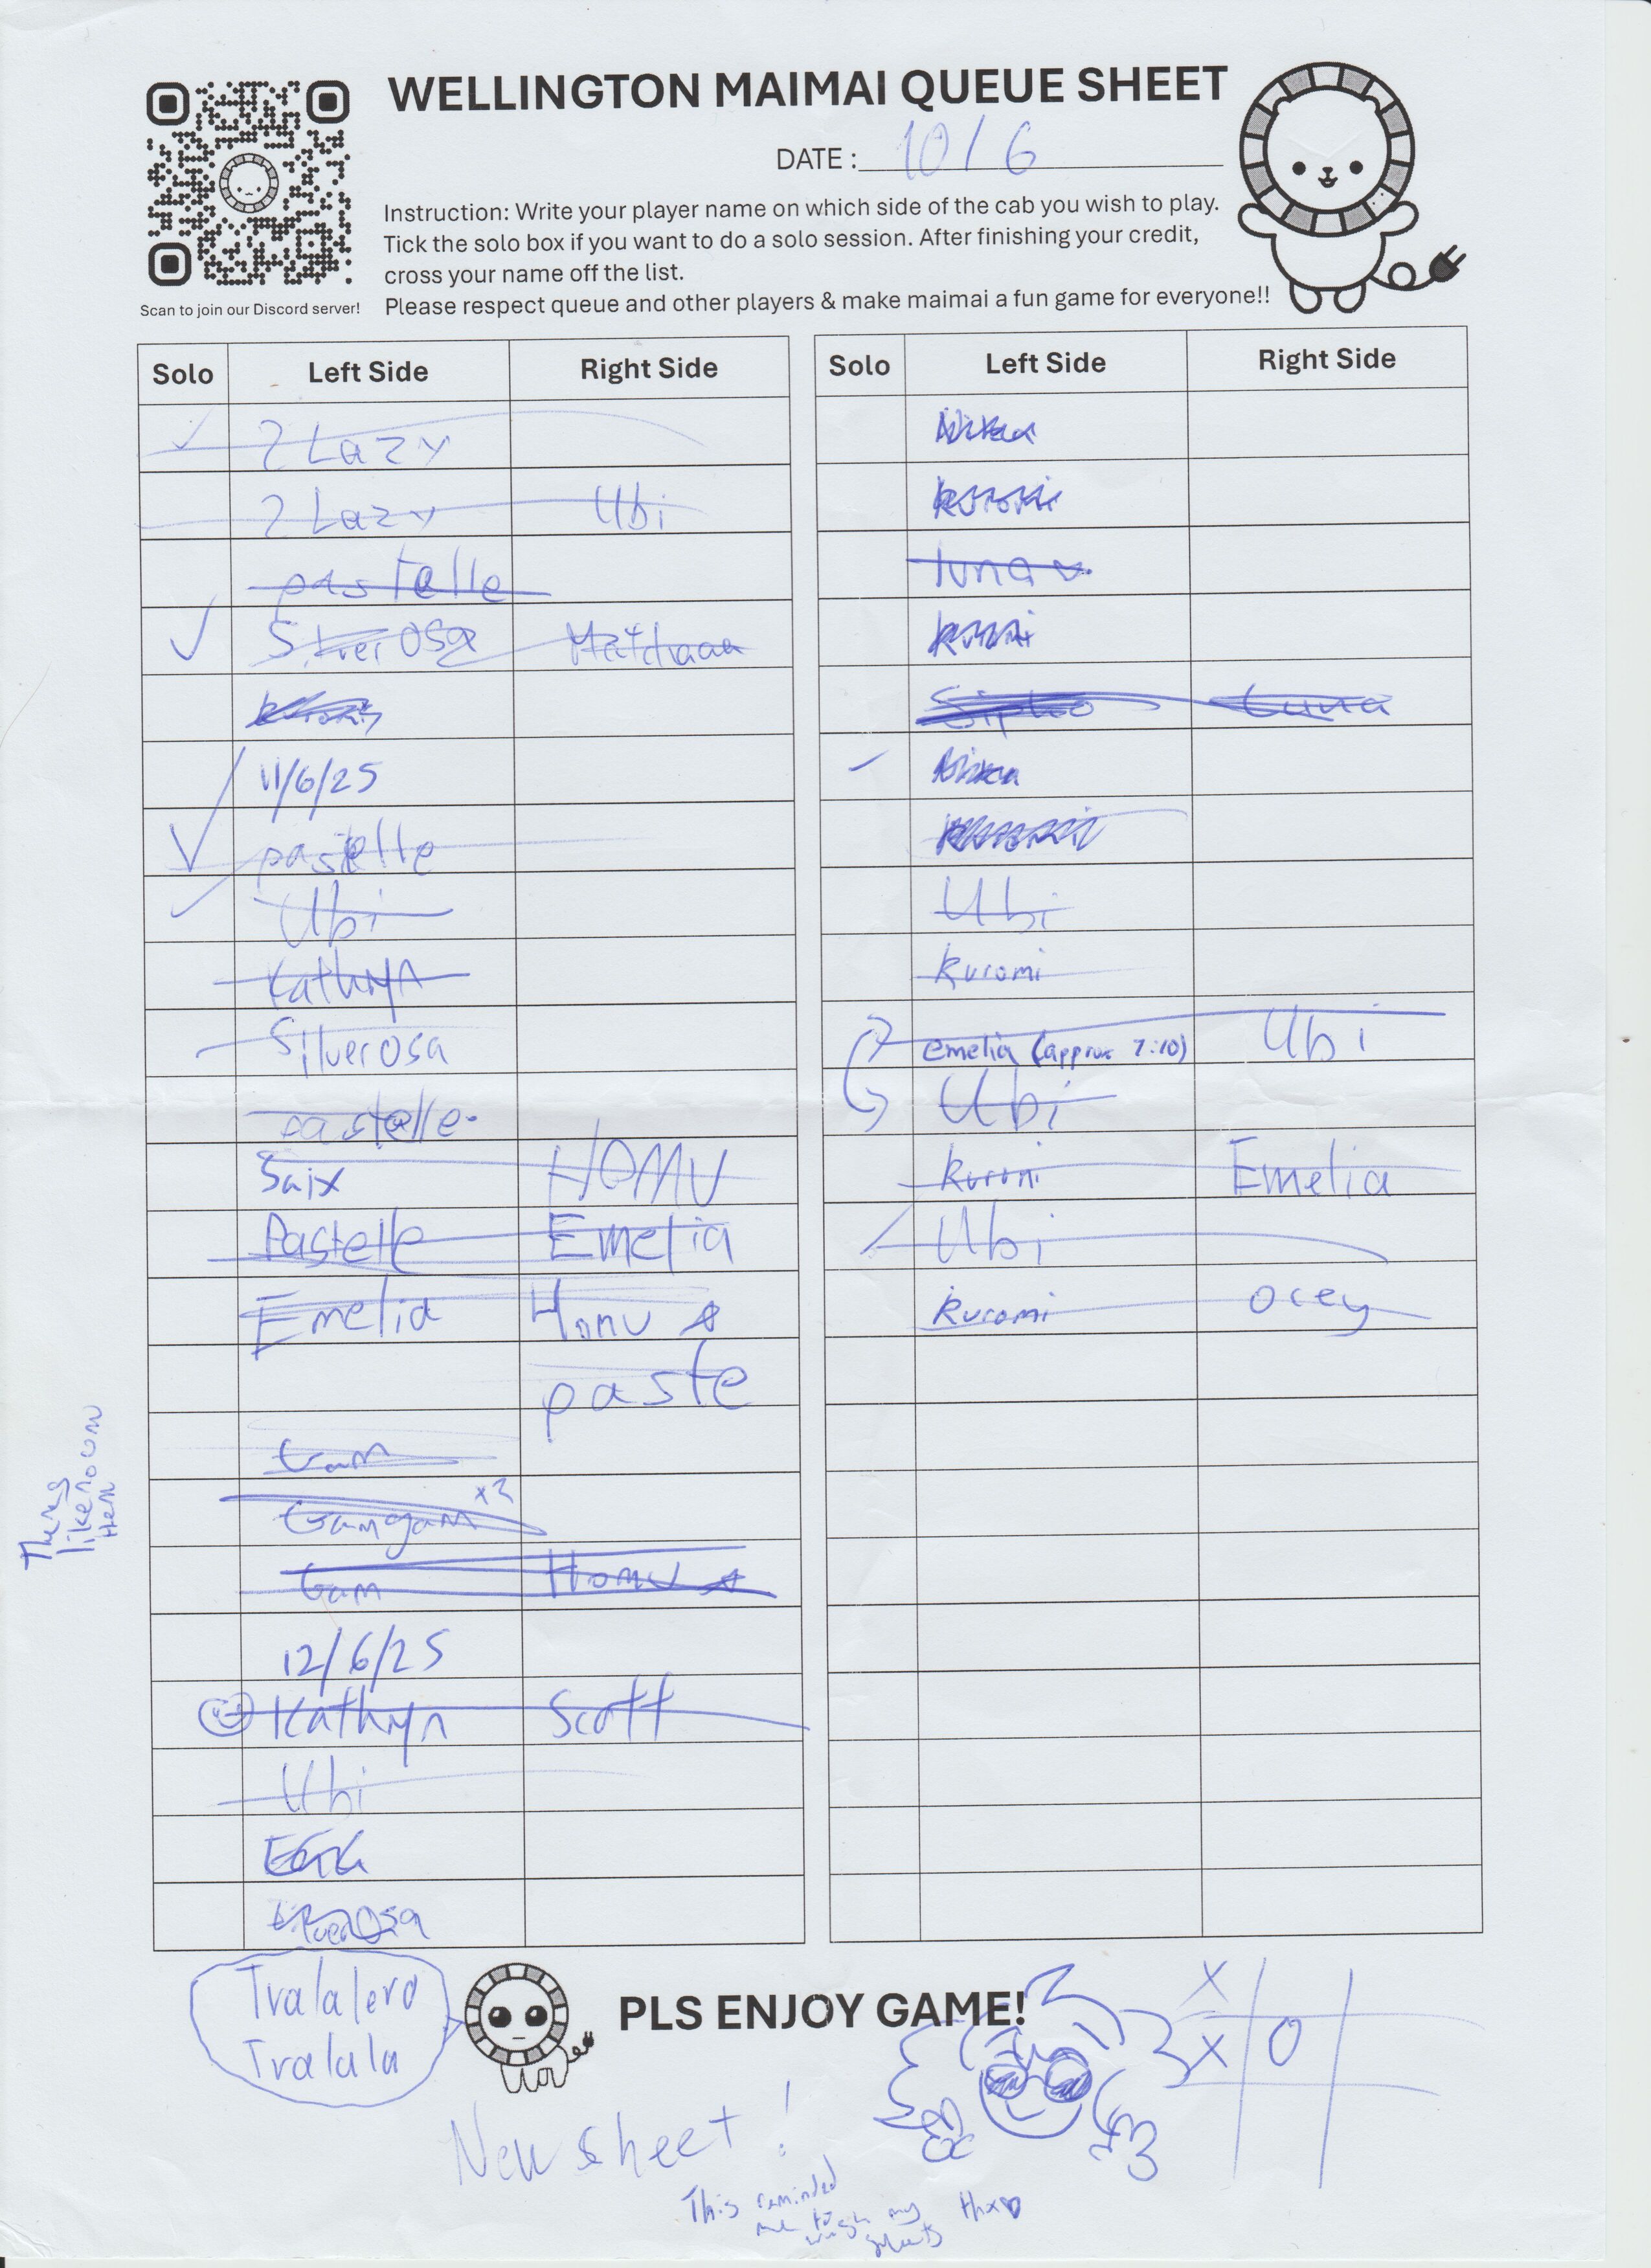 WELLINGTON MAIMAI QUEUE SHEET
DATE: 10/6
Instruction: Write your player name on which side of the cab you wish to play.
Tick the solo box if you want to do a solo session. After finishing your credit,
cross your name off the list.
Please respect queue and other players & make maimai a fun game for everyone!!
Scan to join our Discord server!
Solo Left Side Right Side
2Lazy
2Lazy Ubi
pastelle
Silverosa Matchaaa
kuromi
11/6/25
pastelle
Ubi
Kathryn
Silverosa
pastelle
Saix HOMU
Pastelle Emelia
Emelia Homu ☆
paste
Gam
Gamgam x2
Gam Homu ☆
12/6/25
Kathryn Scott
Ubi
Silverosa
Solo Left Side Right Side
Nikaa
kuromi
tuna
kuromi
Sipho tuna
Nikaa
kuromi
Ubi
kuromi
emelia (approx 7:10) Ubi
Ubi
kuromi Emelia
Ubi
kuromi ocey
Theres
like no own
Tralalero
Tralala
PLS ENJOY GAME!
X
X O
New sheet!
This reminded
me to wash my
sheets
thx♡